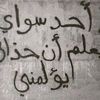 أحد سواي
يعلم أن حذائي
يؤلمني